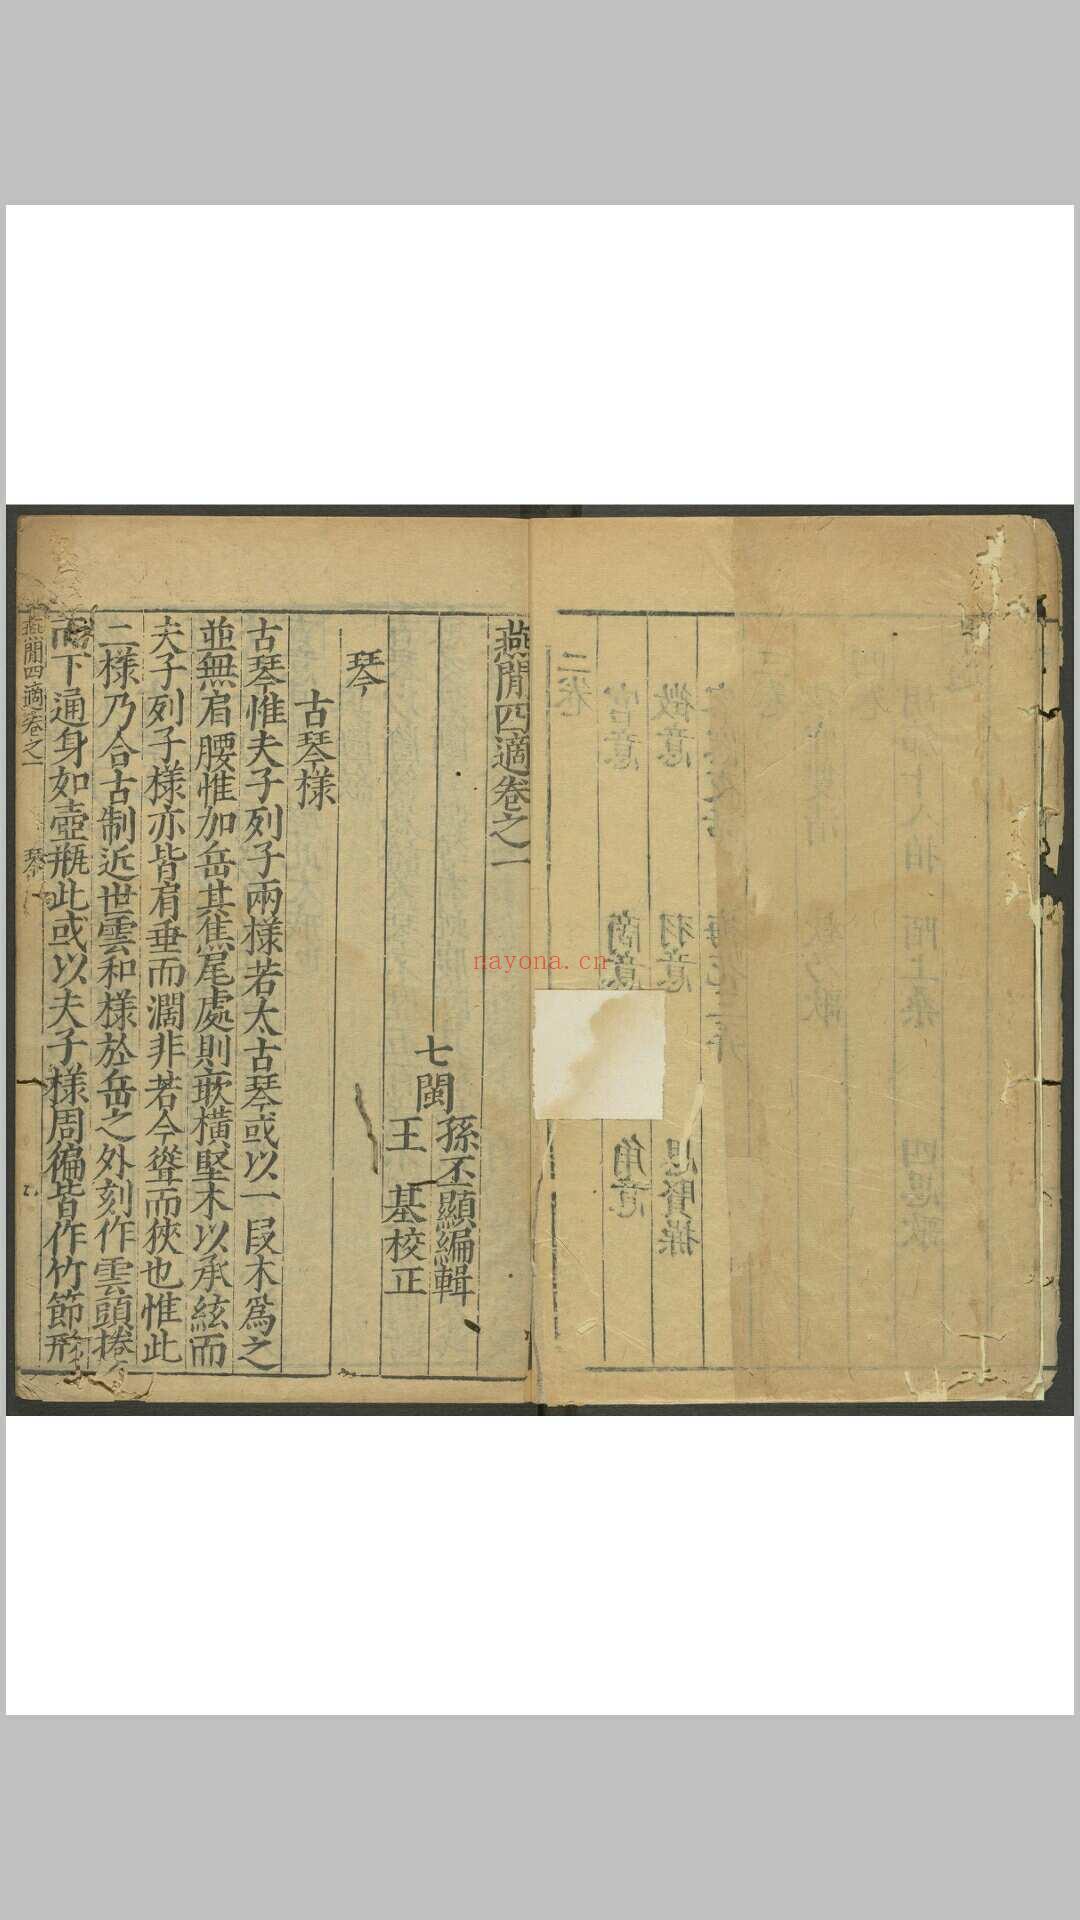 燕閒四適卷之一
七閩
孫丕顯編輯
王基校正
琴
古琴様
古琴惟夫子列子兩様若太古琴或以一段木爲之
並無肩腰惟加岳其焦尾處則嵌橫堅木以承絃而
夫子列子様亦皆肩垂而濶非若今聳而狹也惟此
二様乃合古制近世雲和様於岳之外刻作雲頭捲
而下通身如壺瓶此或以夫子様周徧皆作竹節形
燕閒四適卷之一
琴
二卷
宮意
商意
角意
徵意
羽意
思賢操
四思歌
nayona.cn